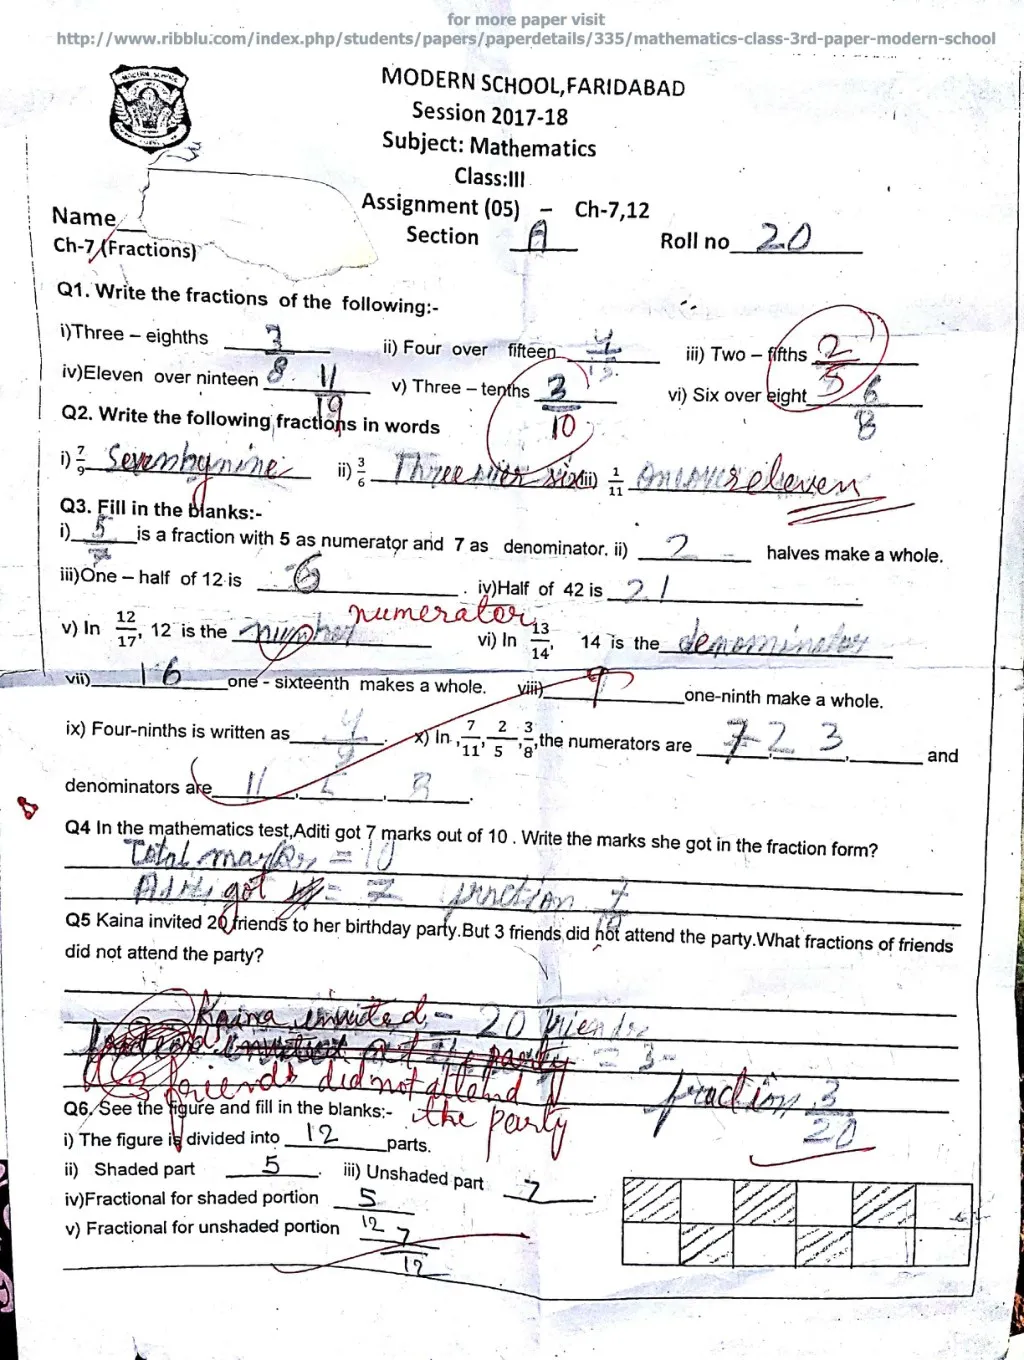 for more paper visit
http://www.ribblu.com/index.php/students/papers/paperdetails/335/mathematics-class-3rd-paper-modern-school
MODERN SCHOOL,FARIDABAD
Session 2017-18
Subject: Mathematics
Class:III
Assignment (05) – Ch-7,12
Name
Section A Roll no 20
Ch-7 (Fractions)
Q1. Write the fractions of the following:-
i)Three – eighths 3/8 ii) Four over fifteen 4/15 iii) Two – fifths 2/5
iv)Eleven over ninteen 11/19 v) Three – tenths 3/10 vi) Six over eight 6/8
Q2. Write the following fractions in words
i) 7/9 Seven by nine ii) 3/6 Three over six iii) 1/11 One over eleven
Q3. Fill in the blanks:-
i) 5/7 is a fraction with 5 as numerator and 7 as denominator. ii) 2 halves make a whole.
iii)One – half of 12 is 6 . iv)Half of 42 is 21
numerator
v) In 12/17, 12 is the vi) In 13/14, 14 is the denominator
vii) 16 one - sixteenth makes a whole. viii) 9 one-ninth make a whole.
ix) Four-ninths is written as 4/9 . x) In , 7/11, 2/5, 3/8,the numerators are 7, 2, 3 and
denominators are 11, 5, 8.
Q4 In the mathematics test,Aditi got 7 marks out of 10 . Write the marks she got in the fraction form?
Total marks = 10
Aditi got = 7 fraction 7/10
Q5 Kaina invited 20 friends to her birthday party.But 3 friends did not attend the party.What fractions of friends
did not attend the party?
Kaina invited = 20 friends
the party = 3
3 friends did not attend
the party fraction 3/20
Q6. See the figure and fill in the blanks:-
i) The figure is divided into 12 parts.
ii) Shaded part 5 . iii) Unshaded part 7 .
iv)Fractional for shaded portion 5/12
v) Fractional for unshaded portion 7/12